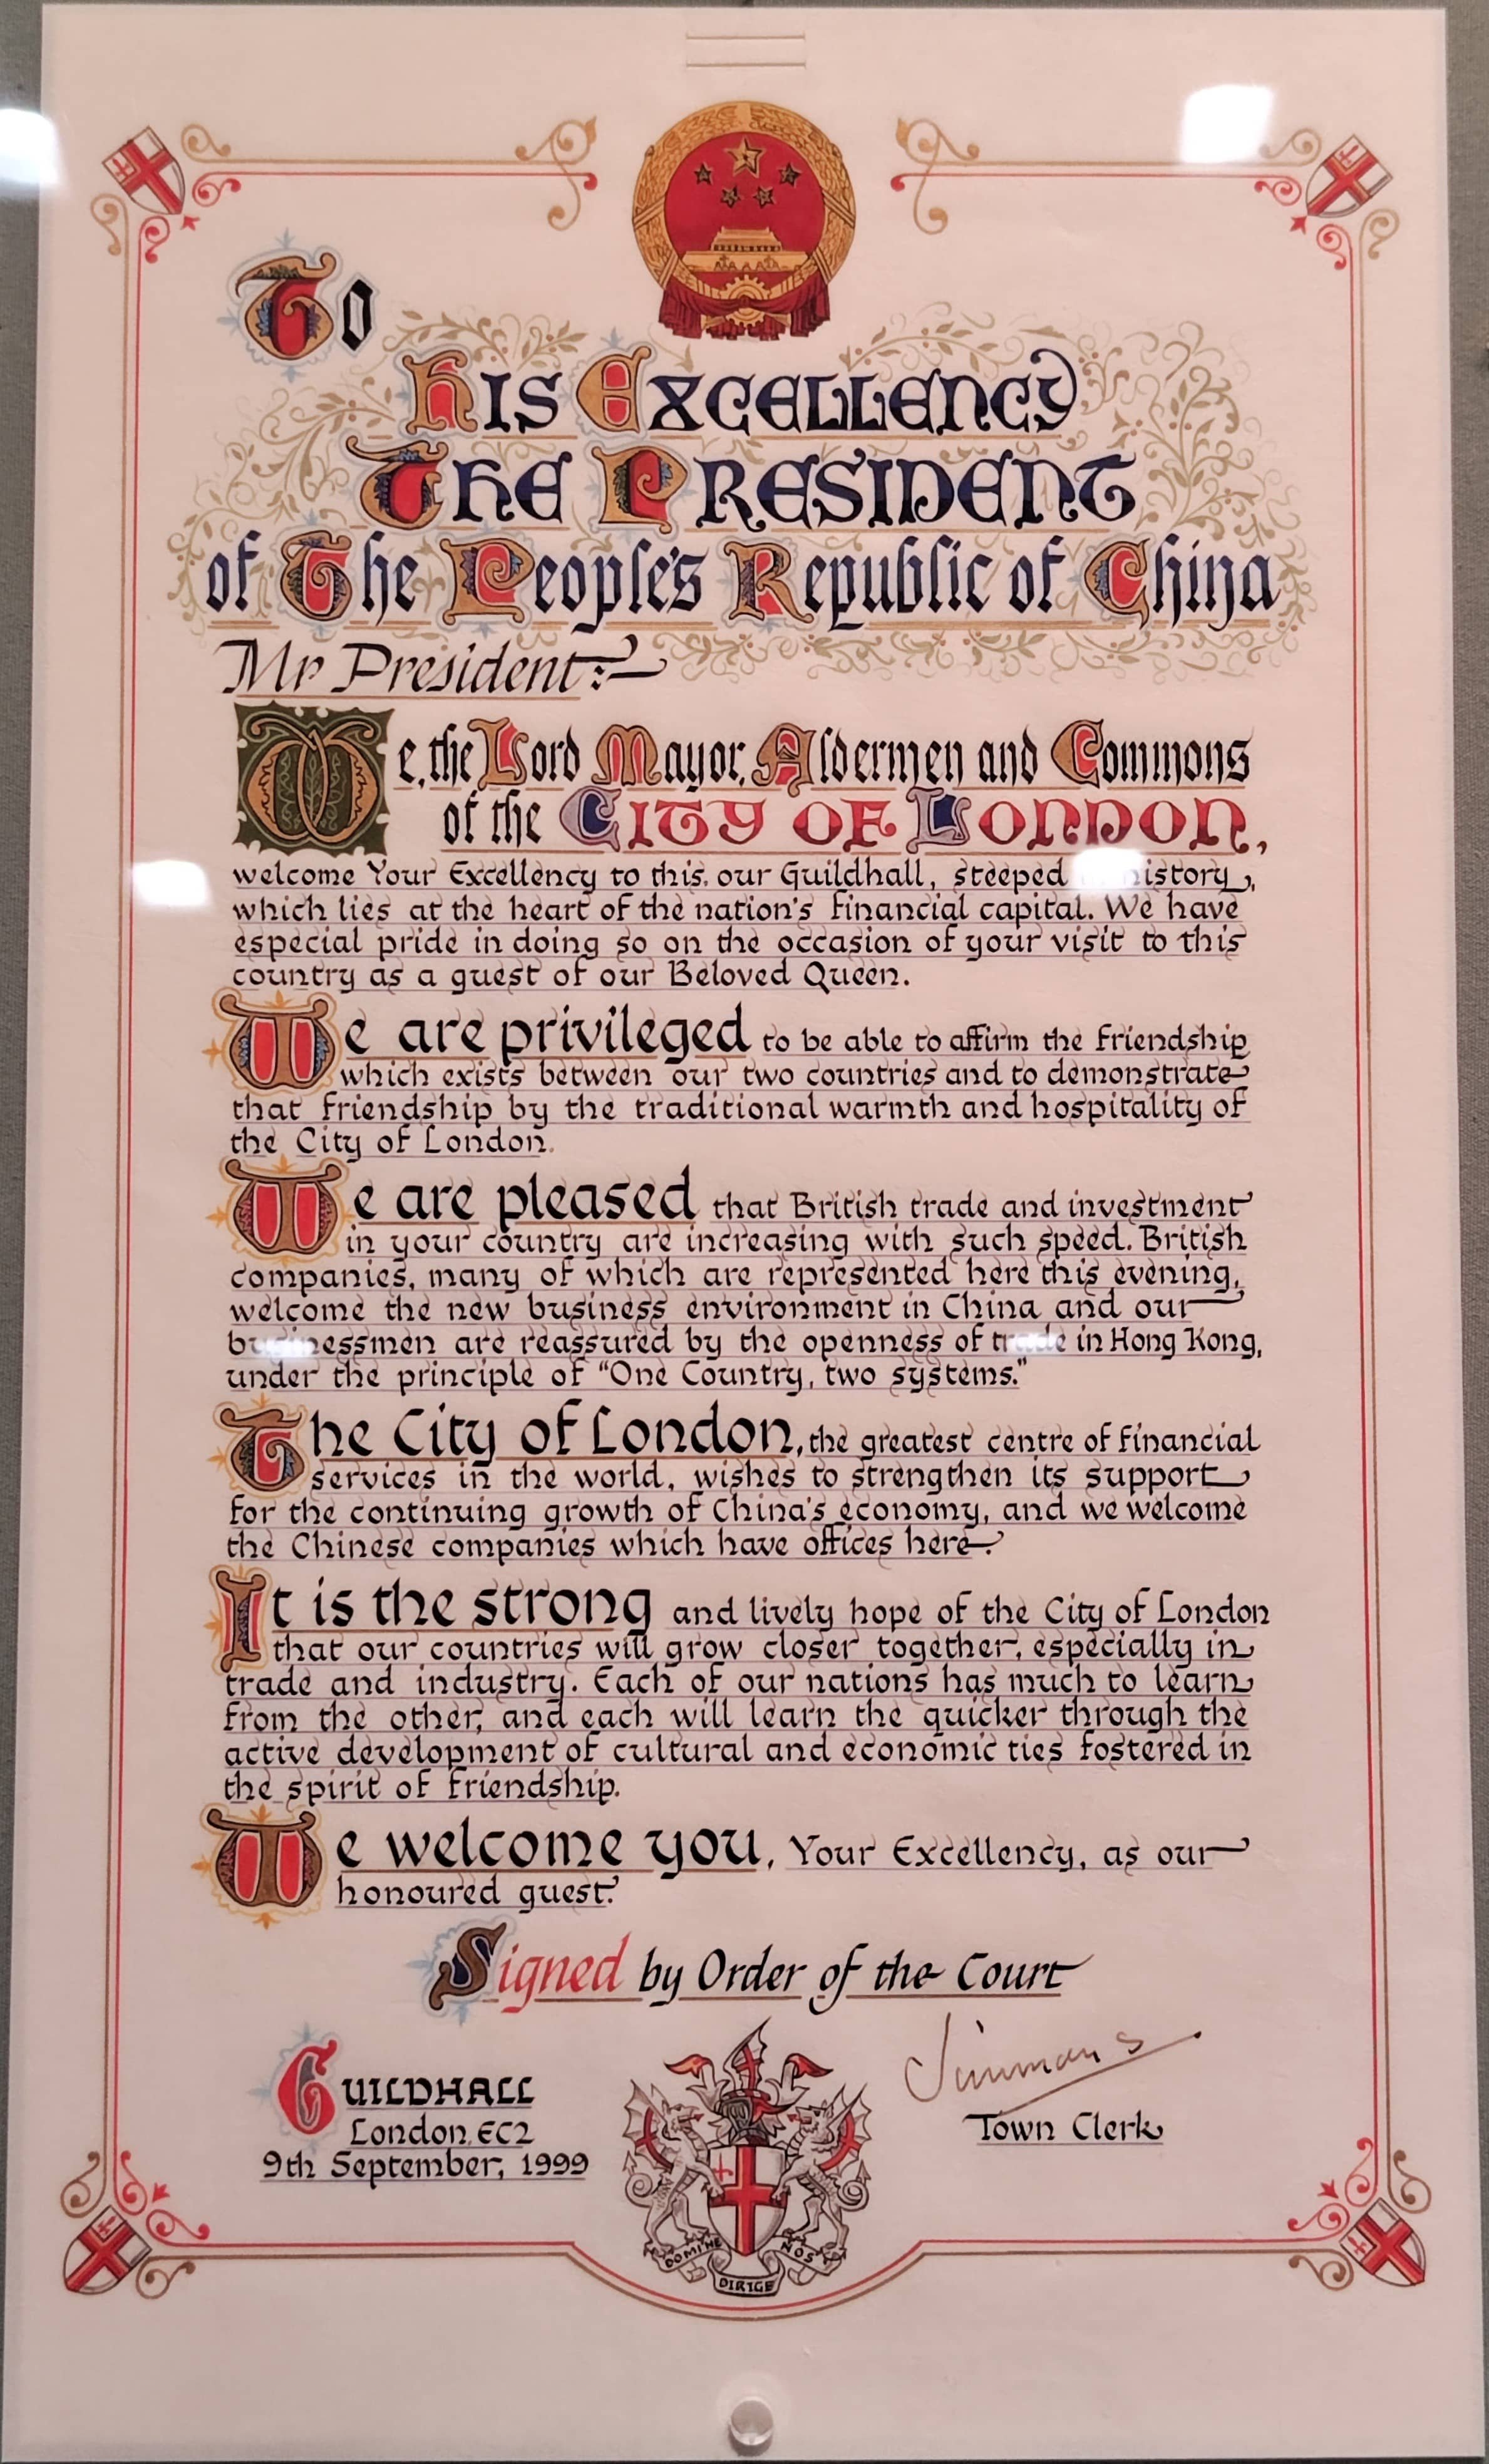 To
His Excellency
The President
of The People's Republic of China
Mr President:
We, the Lord Mayor, Aldermen and Commons
of the City of London,
welcome Your Excellency to this, our Guildhall, steeped history,
which lies at the heart of the nation's financial capital. We have
especial pride in doing so on the occasion of your visit to this
country as a guest of our Beloved Queen.
We are privileged to be able to affirm the friendship
which exists between our two countries and to demonstrate
that friendship by the traditional warmth and hospitality of
the City of London.
We are pleased that British trade and investment
in your country are increasing with such speed. British
companies, many of which are represented here this evening,
welcome the new business environment in China and our
businessmen are reassured by the openness of trade in Hong Kong,
under the principle of "One Country, two systems."
The City of London, the greatest centre of financial
services in the world, wishes to strengthen its support
for the continuing growth of China's economy, and we welcome
the Chinese companies which have offices here.
It is the strong and lively hope of the City of London
that our countries will grow closer together, especially in
trade and industry. Each of our nations has much to learn
from the other, and each will learn the quicker through the
active development of cultural and economic ties fostered in
the spirit of friendship.
We welcome you, Your Excellency, as our
honoured guest.
Signed by Order of the Court
Guildhall
London, EC2
9th September, 1999
Town Clerk
DOMINE DIRIGE NOS